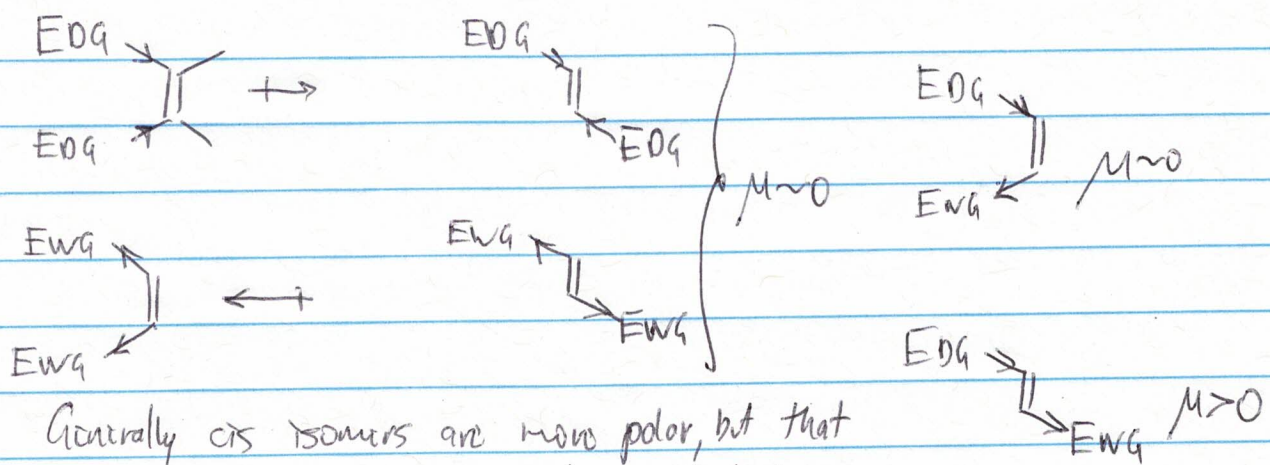 EDG
EDG
EDG
EDG
EWG
EWG
EWG
EWG
μ~0
EDG
EWG
μ~0
EDG
EWG
μ>0
Generally cis isomers are more polar, but that